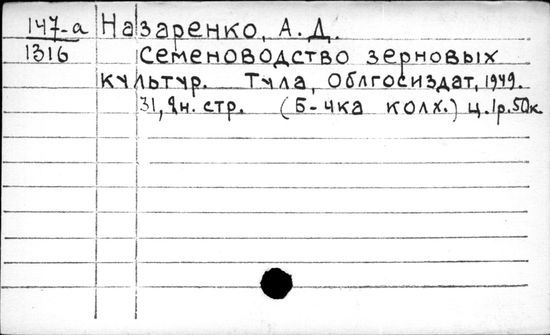 147-а Назаренко, А. Д.
1316 Семеноводство зерновых
культур. Тула, Облгосиздат, 1949.
31, 2н. стр. (Б-чка колх.) ц. 1р. 50к